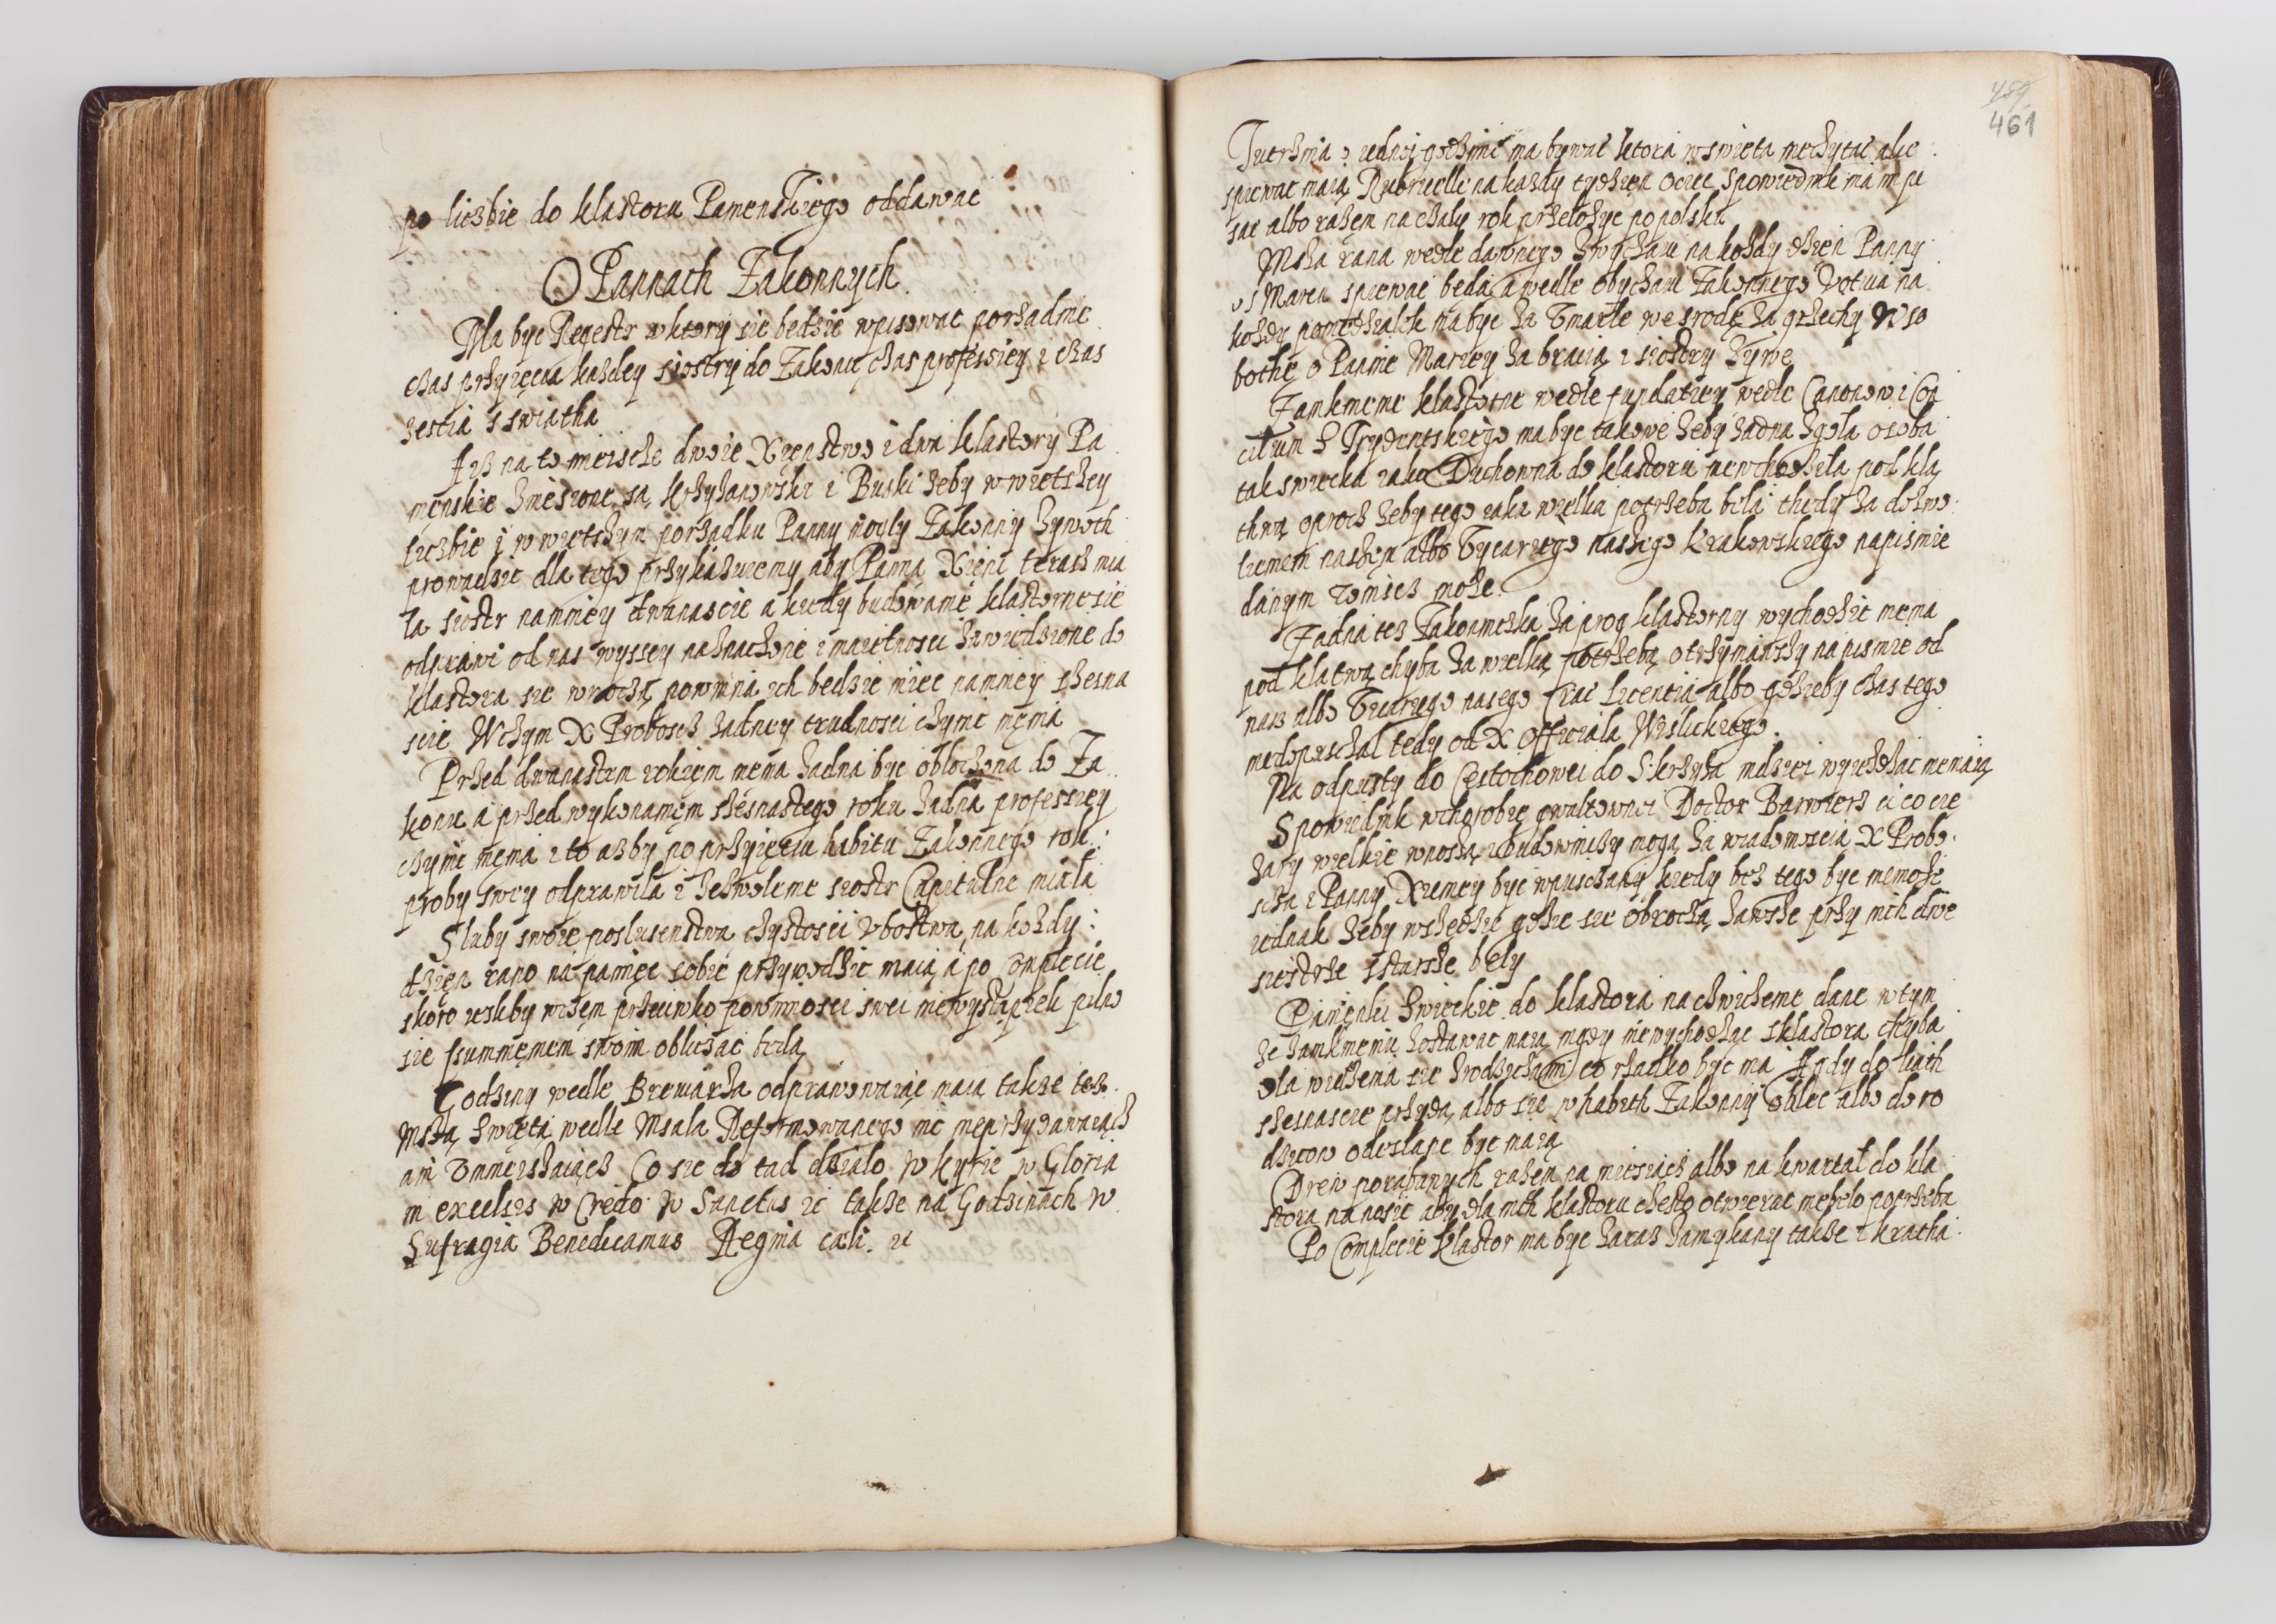 po liczbie do klasztoru Panienskiego oddawac
O Pannach Zakonnych
Ma byc Regestr w ktory sie bedzie wpisowac porządnie
czas przyięcia kazdey siostry do Zakonu czas professiey i czas
zescia s swiatha
Isz na to mieiscze dwoie Xienstwo i dwa klasztory Pa
nienskie zniesione są krzyżanowski i Buski żeby w wietszey
liczbie i w wietszym porządku Panny mogly Zakonny zywoth
prowadzic dla tego przykazuiemy aby Panna Xieni terasz mia
la siostr namniey dwanascie a kiedy budowanie klasztorne sie
odprawi od nas wyssey naznaczone i maietnosci zwiedzione do
klasztora sie wroczą powinna ich bedzie miec namniey szesna
scie W czym X Probosch zadney trudnosci czynic niema
Przed dwanastem rokiem niema zadna byc obloczona do Za
konu a przed wykonaniem szesnastego roku zadna professiey
czynic niema i to aszby po przyięciu habitu Zakonnego rok
proby swey odprawila i zezwolenie siostr Capitulne miala
Sluby swoie poslusenstwa czystosci Vbostwa na kozdy
dzien rano na pamięc sobie przywodzic maią a po Complecie
skoro ieszliby wczem przeciwko powinnosci swei niewystąpieli pilno
sie ssumnieniem swoim obliczac beda
Godziny wedle Brewiarza odprawowac maią takze tesz
Mszą Swięta wedle Msala Reformowanego nic neprzydawaiącz
ani Vmnieiszaiącz Co sie do tad dzialo w kyrie w Gloria
in excelsis w Credo w Sanctus ic takze na Godzinach w
Sufragia Benedicamus Regina cæli. ic
459
461
Jutrznia o iednei godzinie ma bywac ktora w swieta nieczytac ale
spiewac maią Rubricelle na kazdy tydzien Ociec Spowiednik ma im pi
sac albo razem na czaly rok przelozyc po polsku
Msza rana wedle dawnego zwyczaiu na kozdy dzien Panny
o s Mariey spiewac beda a wedle obyczaiu Zakonnego Votiua na
kozdy poniedzialek ma byc za Vmarle we srode za grzechy W so
bothę o Pannie Mariey za bracią i siostry zywe
Zamknienie klasztorne wedle fundatiey wedle Canonow i Con
cilium S Trydentskiego ma byc takowe zeby zadna zgola osoba
tak swiecka iako Duchowna do klastoru niewchodzila pod klą
thwą oprocz zeby tego iaka wielka potrzeba bela thedy za dozwo
leniem naszem albo Vycariego naszego krakowskiego na pismie
danym wnisc może.
Zadna tesz Zakonniczka za prog klasztorny wychodzic niema
pod klatwą chyba za wielką potrzebą otrzymawszy na pismie od
nasz albo Vicariego nasego Crac licentią albo gdzieby czas tego
niedopusczal tedy od X Officiala Wislickiego.
Na odpusty do Częstochowei do S krzyża indziei wyiezdzac niemaią
Spowiednik w chorobie gwaltownei Doctor Barwierz ci co cie
zary wielkie wnoszą i budowniczy mogą za wiadomoscią X Probo
scza i Panny Xieniey byc wpusczany kiedy bez tego byc niemoże
iednak żeby wszędzie gdzie sie obroczą zawsze przy nich dwie
siestrze starsze bely
Panienki Swieckie do klasztora na cwiczenie dane w tym
ze zamknieniu zostawac maią nigdy niewychodząc s klasztora chyba
dla widzenia sie z rodzicami co rzadko byc ma A gdy do liath
szesnascie przyda albo sie w habith Zakonny oblec albo do ro
dzicow odeslane byc maią
Drew porąbanych razem na miesiącz albo na kwartal do kla
sztora nanosic aby dla nich klasztoru często otwierac niebelo potrzeba
Po Complecie klasztor ma byc zarasz zamykany takze i kratha